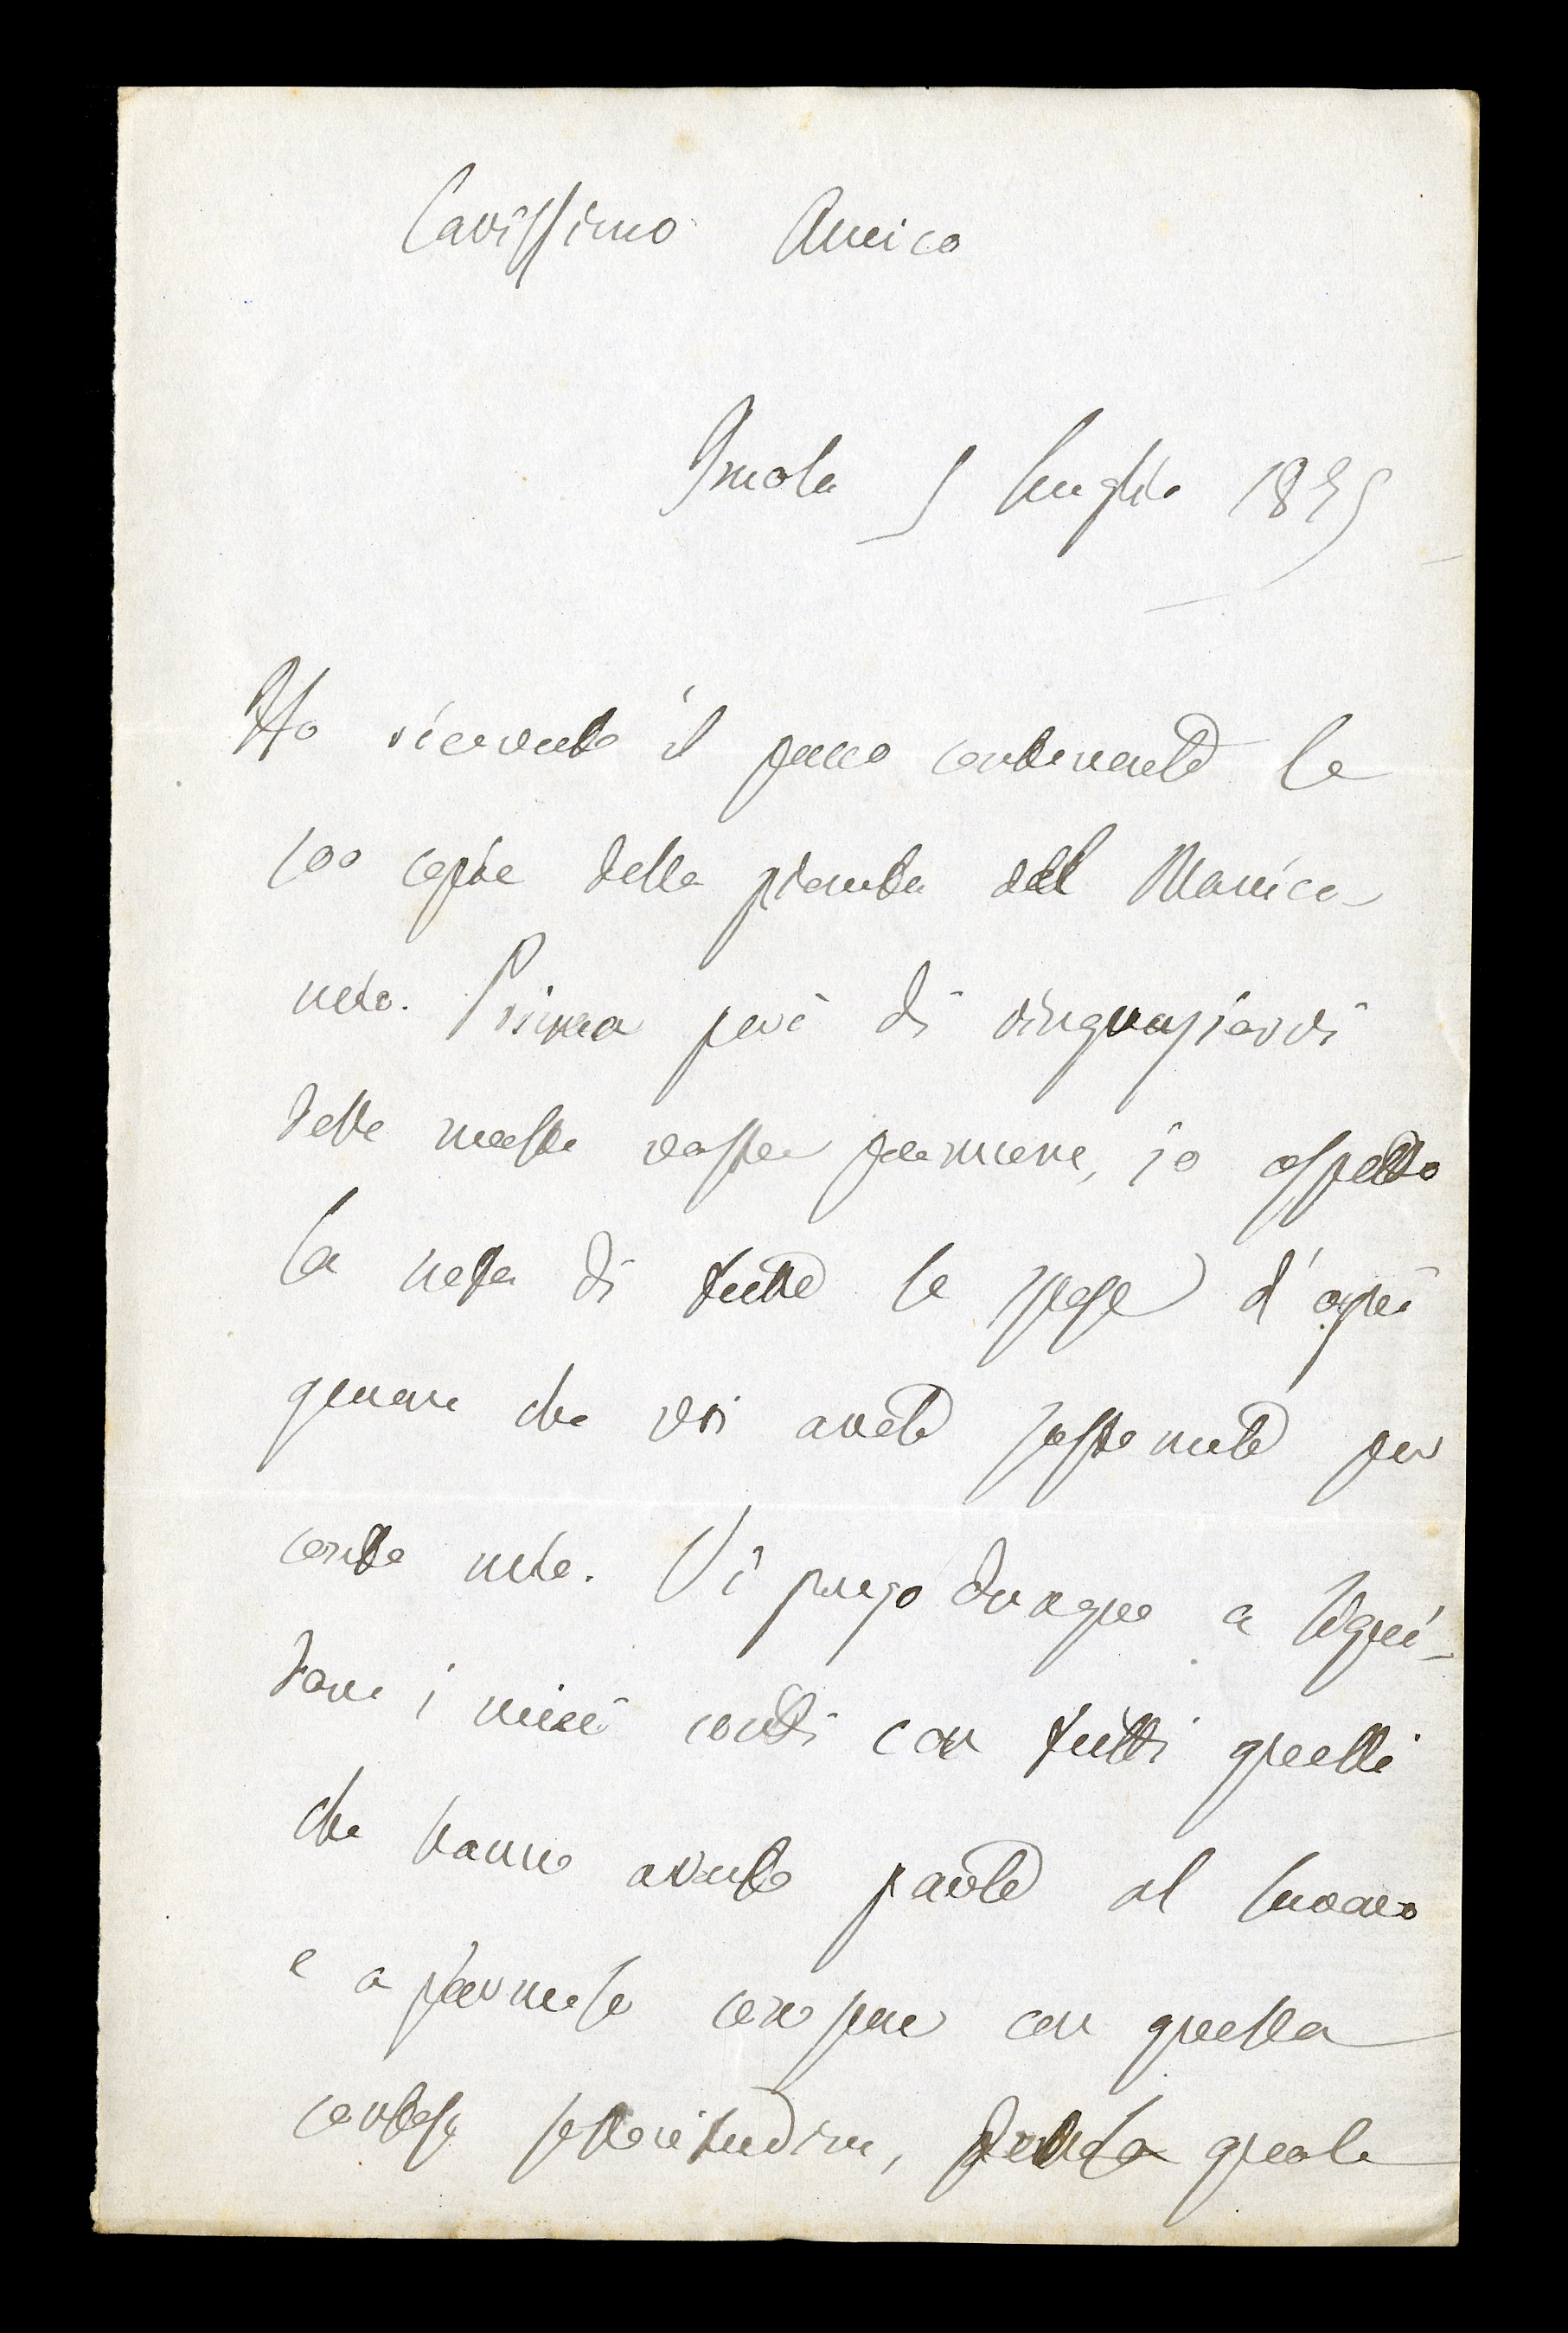 Carissimo Amico
Imola 5 luglio 18
Ho ricevuto il pacco contenente le
100 copie della pianta del Manico-
mio. Prima però di ringraziarvi
delle vostre premure, io aspetto
la nota di tutte le spese d'ogni
genere che voi avete sostenute per
conto mio. Vi prego dunque a liqui-
dare i miei conti con tutti quelli
che hanno avuto parte al lavoro
e a farmelo sapere con quella
cortese sollecitudine, per la quale